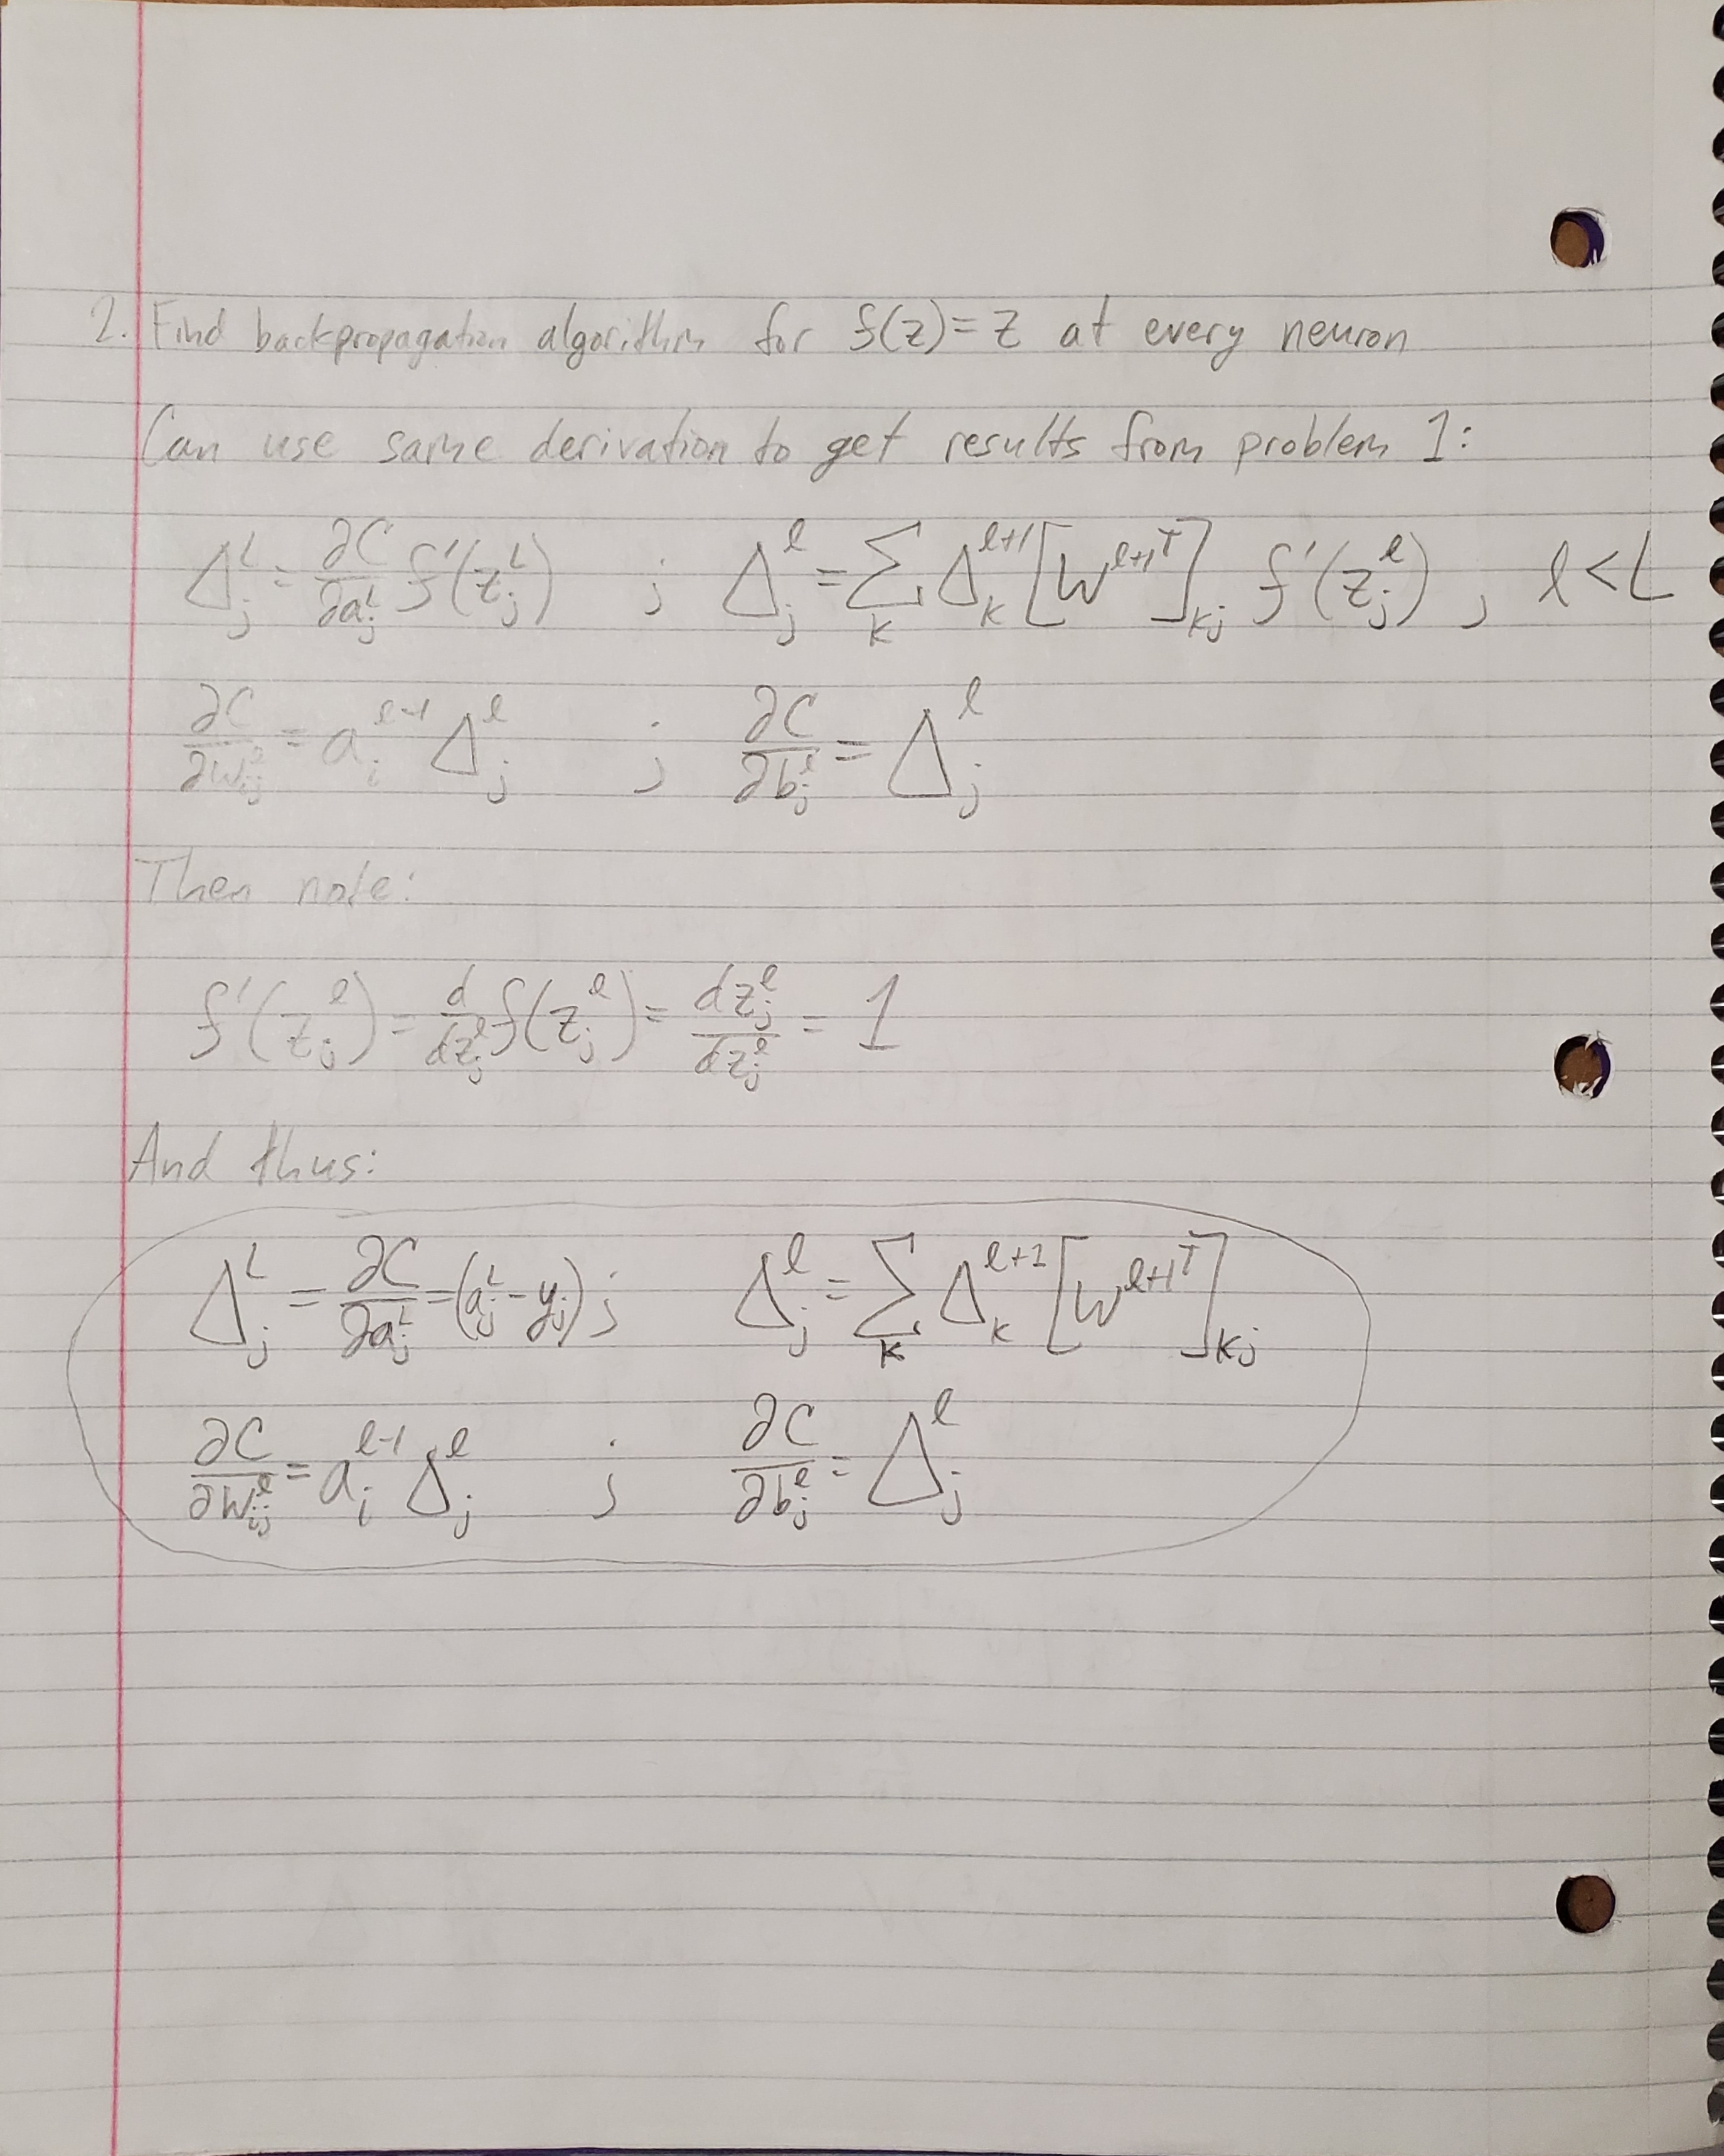 2. Find backpropagation algorithm for f(z)=z at every neuron
Can use same derivation to get results from problem 1:
Δ_j^L = ∂C/∂a_j^L f'(z_j^L) ; Δ_j^l = Σ_k Δ_k^{l+1} [W^{l+1^T}]_{kj} f'(z_j^l) , l<L
∂C/∂w_{ij}^l = a_i^{l-1} Δ_j^l ; ∂C/∂b_j^l = Δ_j^l
Then note:
f'(z_j^l) = d/dz_j^l f(z_j^l) = dz_j^l/dz_j^l = 1
And thus:
Δ_j^L = ∂C/∂a_j^L = (a_j^L - y_j) ; Δ_j^l = Σ_k Δ_k^{l+1} [W^{l+1^T}]_{kj}
∂C/∂w_{ij}^l = a_i^{l-1} Δ_j^l ; ∂C/∂b_j^l = Δ_j^l